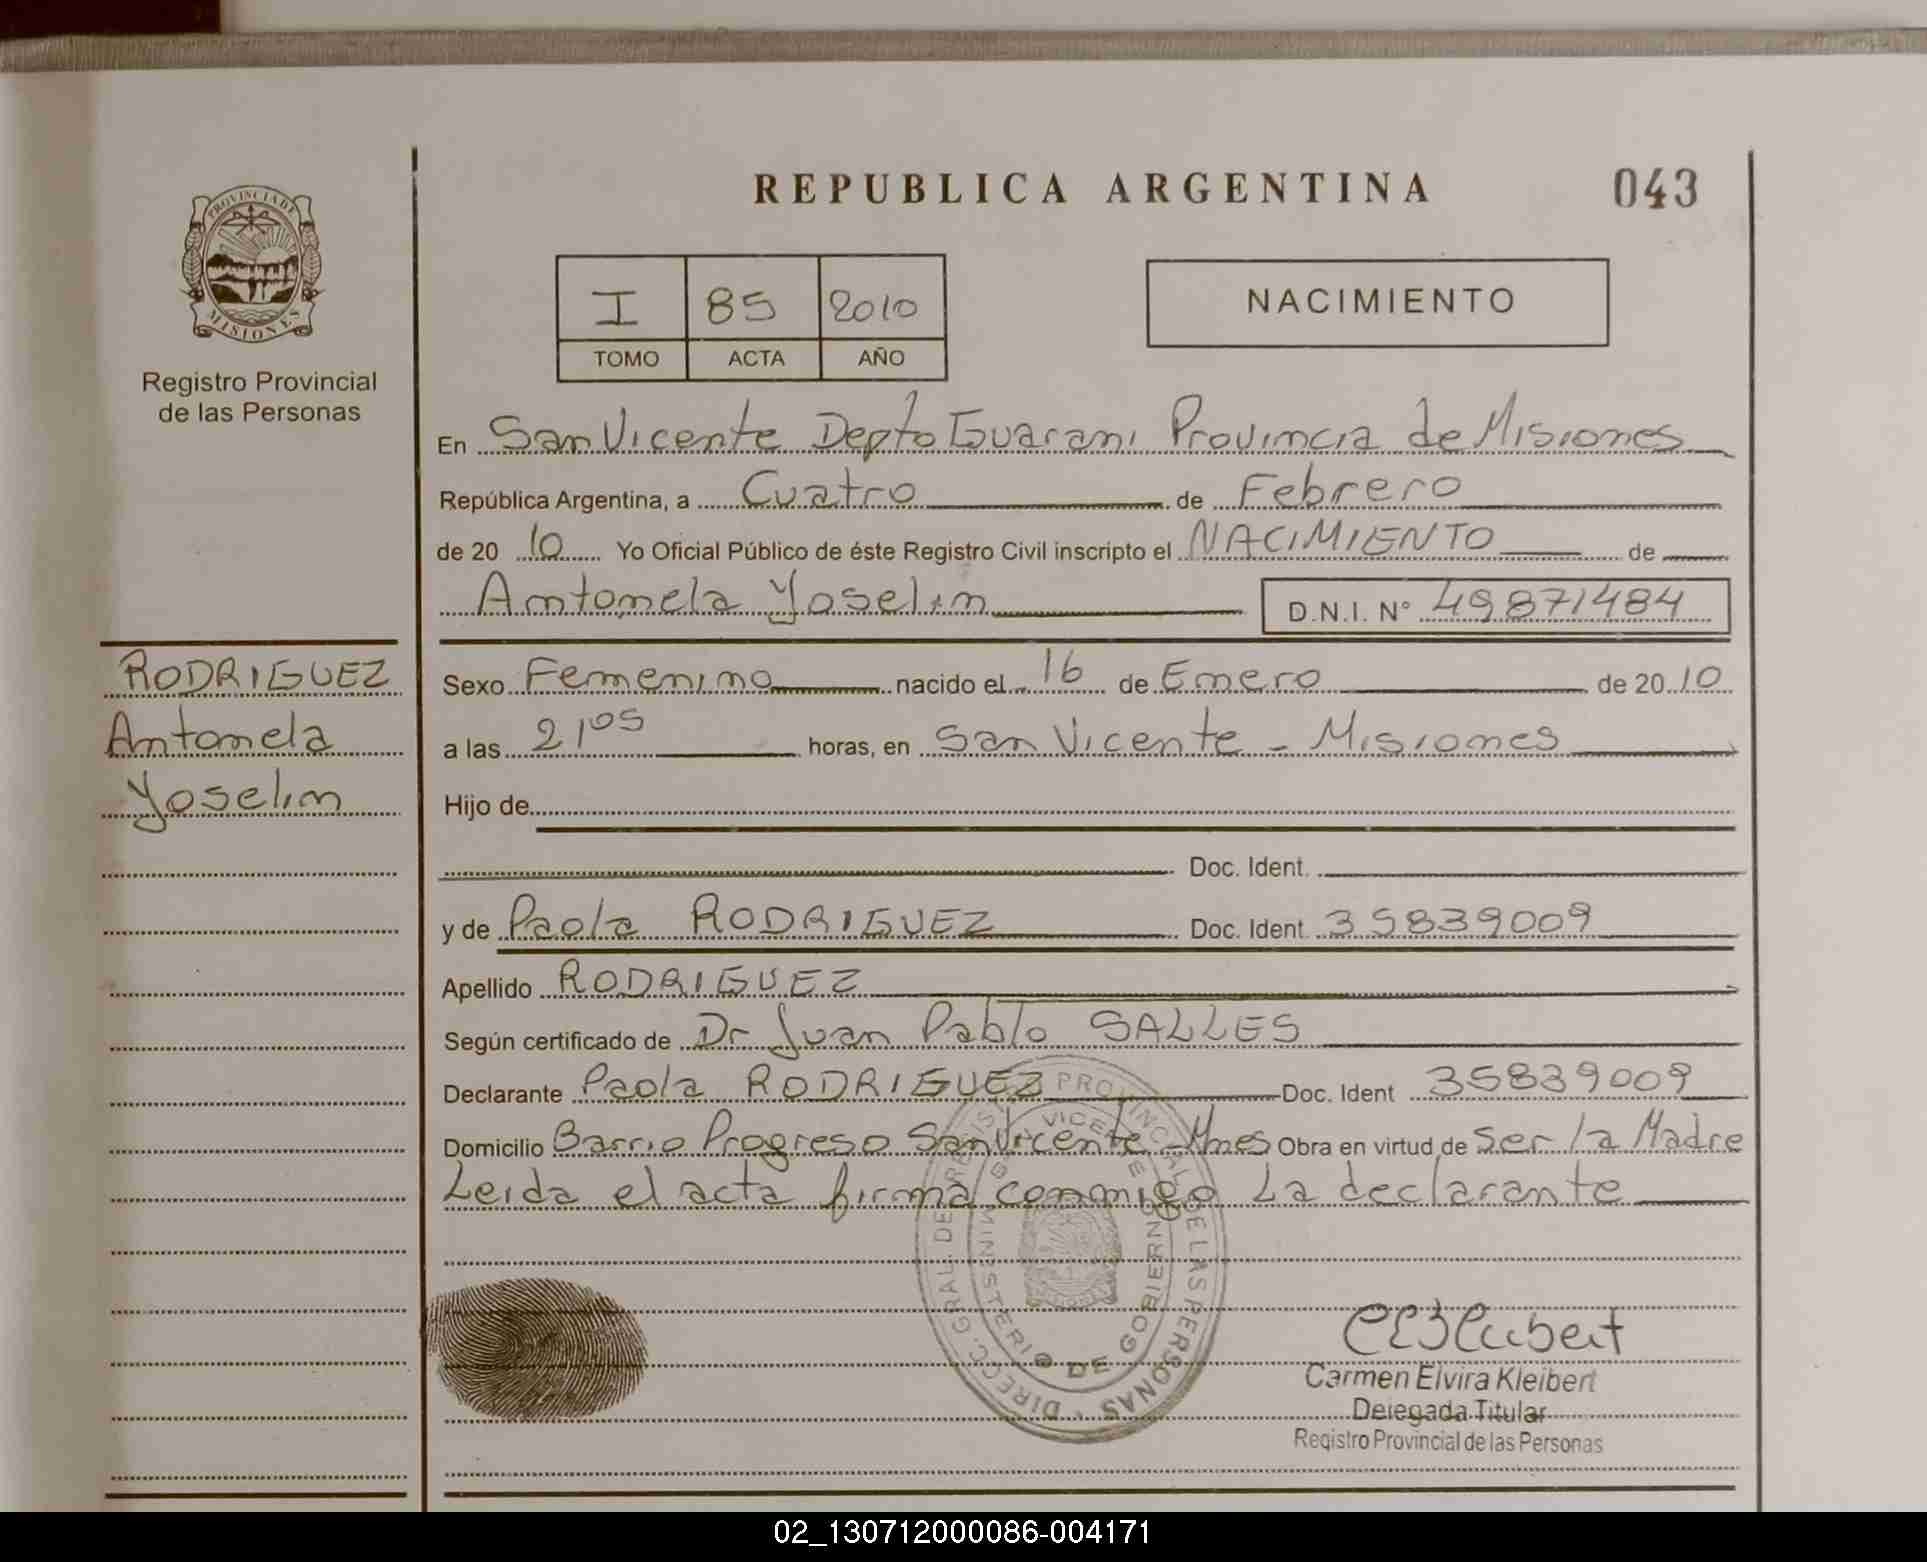 REPUBLICA ARGENTINA
043
PROVINCIA DE
MISIONES
Registro Provincial
de las Personas
I 85 2010
TOMO ACTA AÑO
NACIMIENTO
En San Vicente Depto Guarani Provincia de Misiones
República Argentina, a Cuatro de Febrero
de 20 10 Yo Oficial Público de éste Registro Civil inscripto el NACIMIENTO de
Antonela Yoselin D.N.I. N° 49871484
RODRIGUEZ
Antonela
Yoselin
Sexo Femenino nacido el 16 de Enero de 20 10
a las 21 05 horas, en San Vicente - Misiones
Hijo de
Doc. Ident.
y de Paola RODRIGUEZ Doc. Ident. 35839009
Apellido RODRIGUEZ
Según certificado de Dr Juan Pablo SALLES
Declarante Paola RODRIGUEZ Doc. Ident 35839009
Domicilio Barrio Progreso San Vicente - Mnes Obra en virtud de ser la Madre
Leida el acta firma conmigo La declarante
DIRECC. GRAL. DE REGISTRO PROVINCIAL DE LAS PERSONAS
MINISTERIO DE GOBIERNO
VICENTE
Carmen Elvira Kleibert
Delegada Titular
Registro Provincial de las Personas
02_130712000086-004171